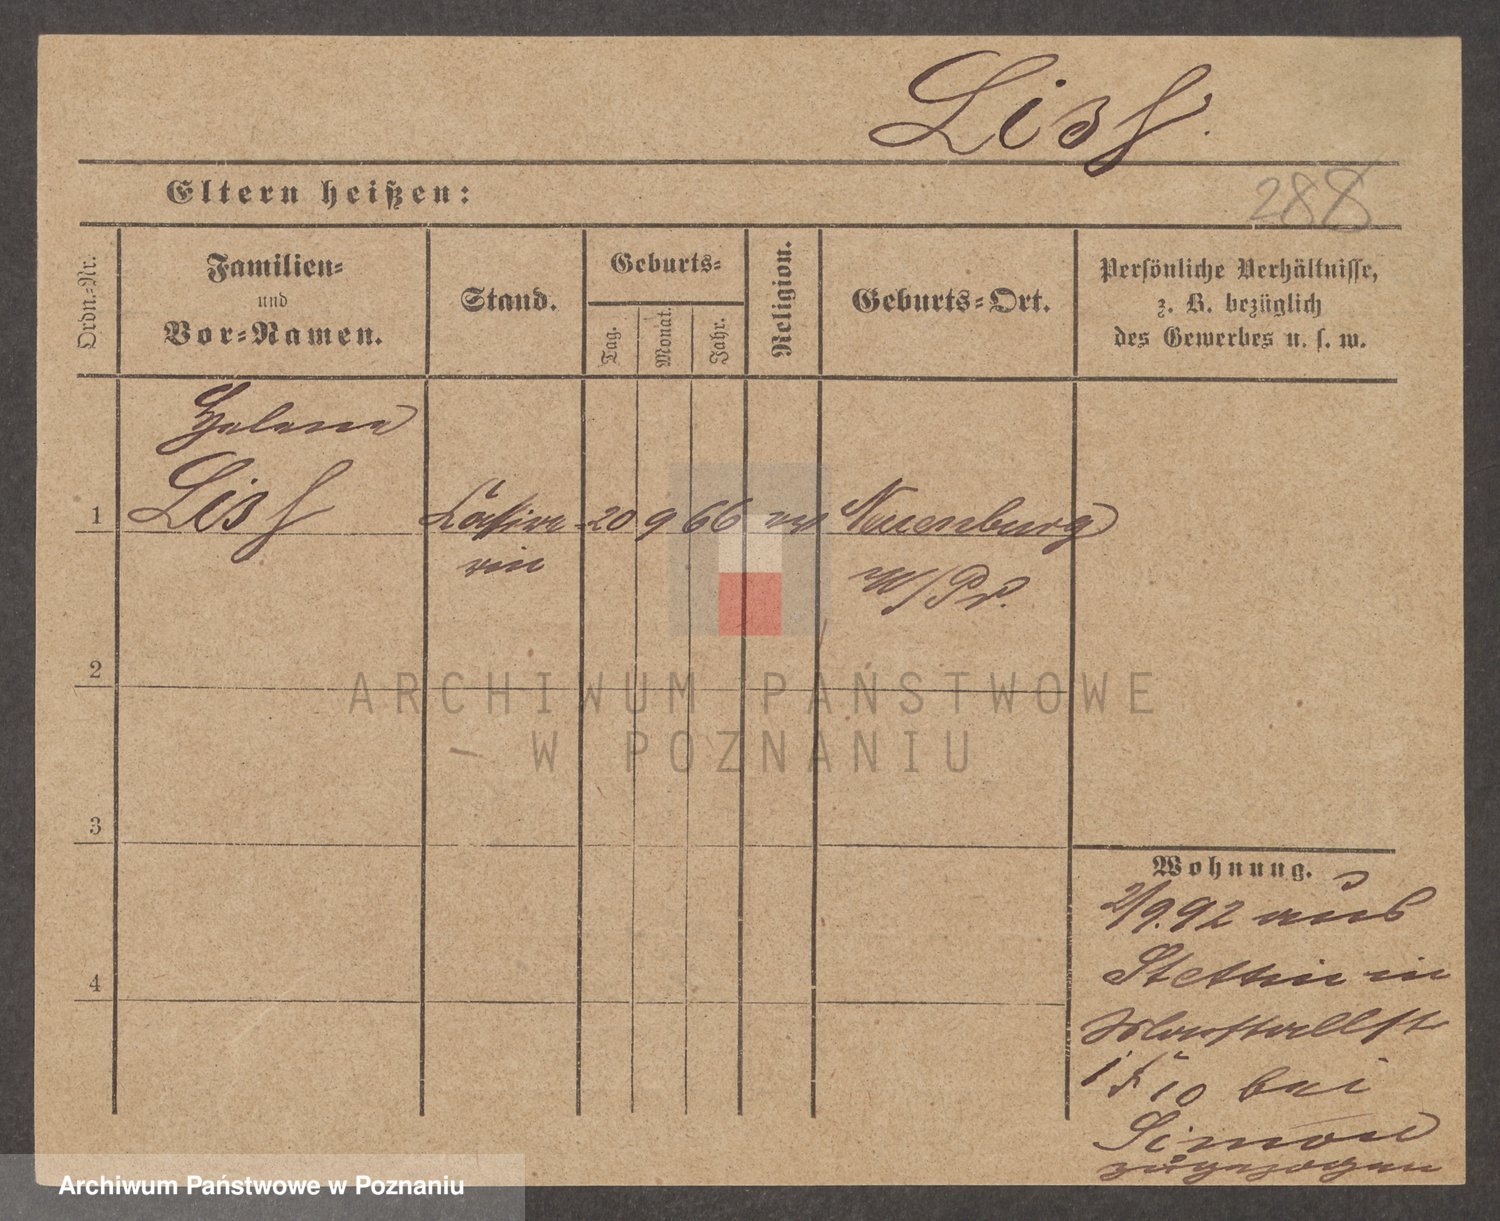 Liss.
Eltern heißen:
288
Ordn.-Nr.
Familien-
und
Vor-Namen.
Stand.
Geburts-
Tag.
Monat.
Jahr.
Religion.
Geburts-Ort.
Persönliche Verhältnisse,
z. B. bezüglich
des Gewerbes u. s. w.
Helene
1 Liss Kassire- 20 9 66 Neuenburg
rin W/Pr.
2
3
4
Wohnung.
2/9.92 aus
Stettin in
Marstallst
10 bei
Simon
zugezogen
ARCHIWUM PAŃSTWOWE
W POZNANIU
Archiwum Państwowe w Poznaniu